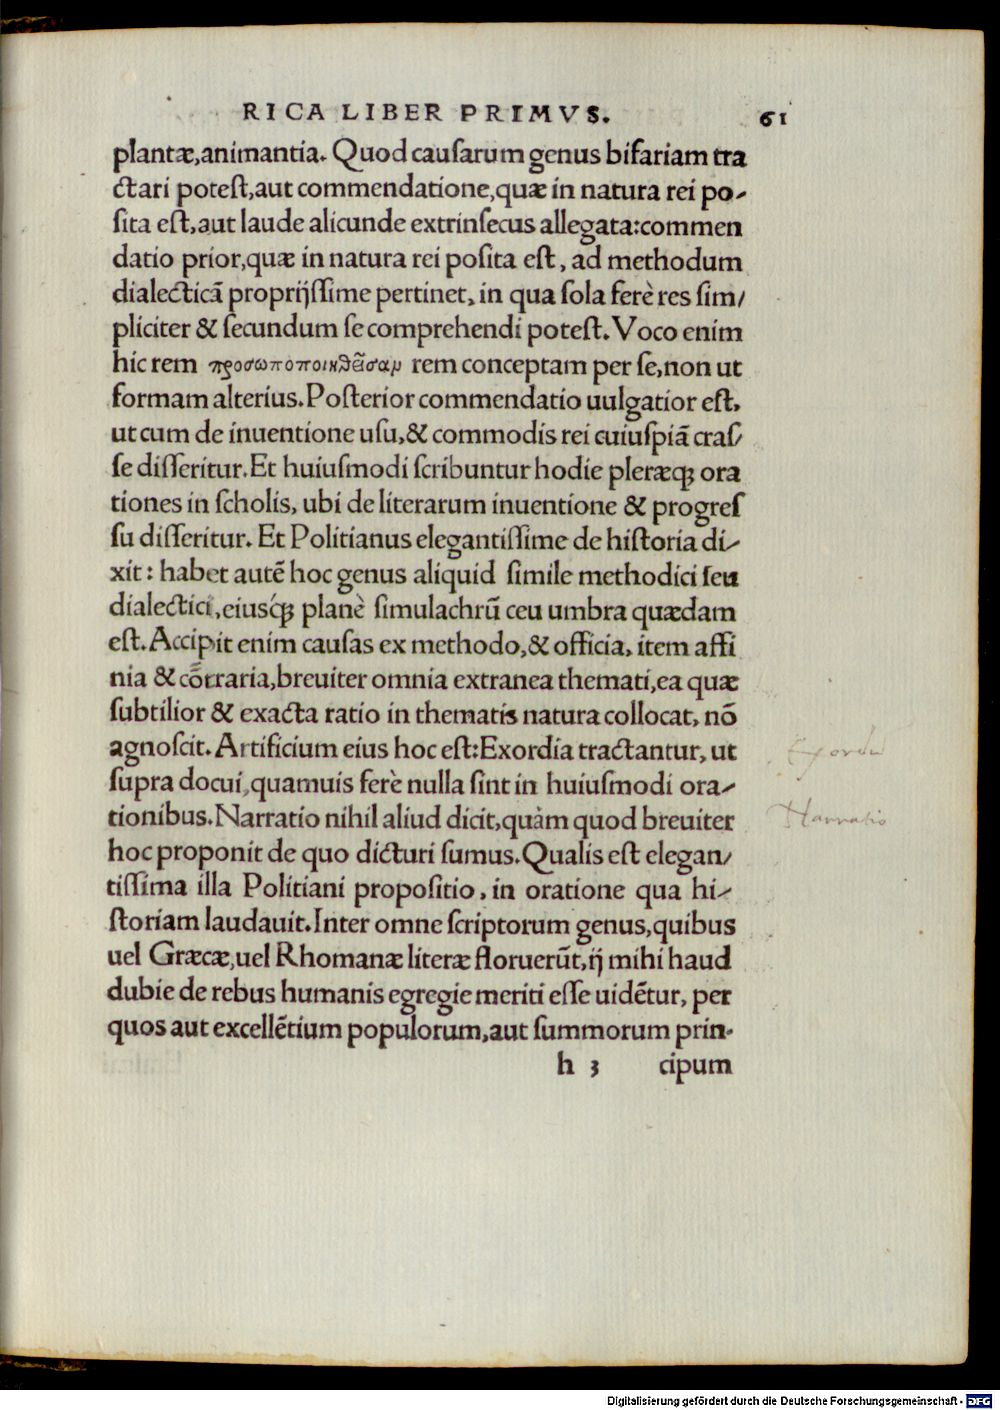 RICA LIBER PRIMVS. 61
plantæ,animantia. Quod cauſarum genus bifariam tra
ctari poteſt,aut commendatione,quæ in natura rei po-
ſita eſt,aut laude alicunde extrinſecus allegata:commen
datio prior,quæ in natura rei poſita eſt, ad methodum
dialecticã proprijſſime pertinet, in qua ſola ferè res ſim/
pliciter & ſecundum ſe comprehendi poteſt. Voco enim
hic rem προσωποποιηθεῖσαμ rem conceptam per ſe,non ut
formam alterius.Poſterior commendatio uulgatior eſt,
ut cum de inuentione uſu,& commodis rei cuiuſpiã craſ/
ſe diſſeritur.Et huiuſmodi ſcribuntur hodie pleræq; ora
tiones in ſcholis, ubi de literarum inuentione & progreſ
ſu diſſeritur. Et Politianus elegantiſſime de hiſtoria di-
xit: habet autẽ hoc genus aliquid ſimile methodici ſeu
dialectici,eiusq́; planè ſimulachrũ ceu umbra quædam
eſt.Accipit enim cauſas ex methodo,& officia, item affi
nia & cõtraria,breuiter omnia extranea themati,ea quæ
ſubtilior & exacta ratio in thematis natura collocat, nõ
agnoſcit.Artificium eius hoc eſt:Exordia tractantur, ut
ſupra docui,quamuis ferè nulla ſint in huiuſmodi ora-
tionibus.Narratio nihil aliud dicit,quàm quod breuiter
hoc proponit de quo dicturi ſumus.Qualis eſt elegan/
tiſſima illa Politiani propoſitio, in oratione qua hi-
ſtoriam laudauit.Inter omne ſcriptorum genus,quibus
uel Græcæ,uel Rhomanæ literæ floruerũt,ij mihi haud
dubie de rebus humanis egregie meriti eſſe uidẽtur, per
quos aut excellẽtium populorum,aut ſummorum prin-
h 3 cipum
Narratio
Digitalisierung gefördert durch die Deutsche Forschungsgemeinschaft - DFG